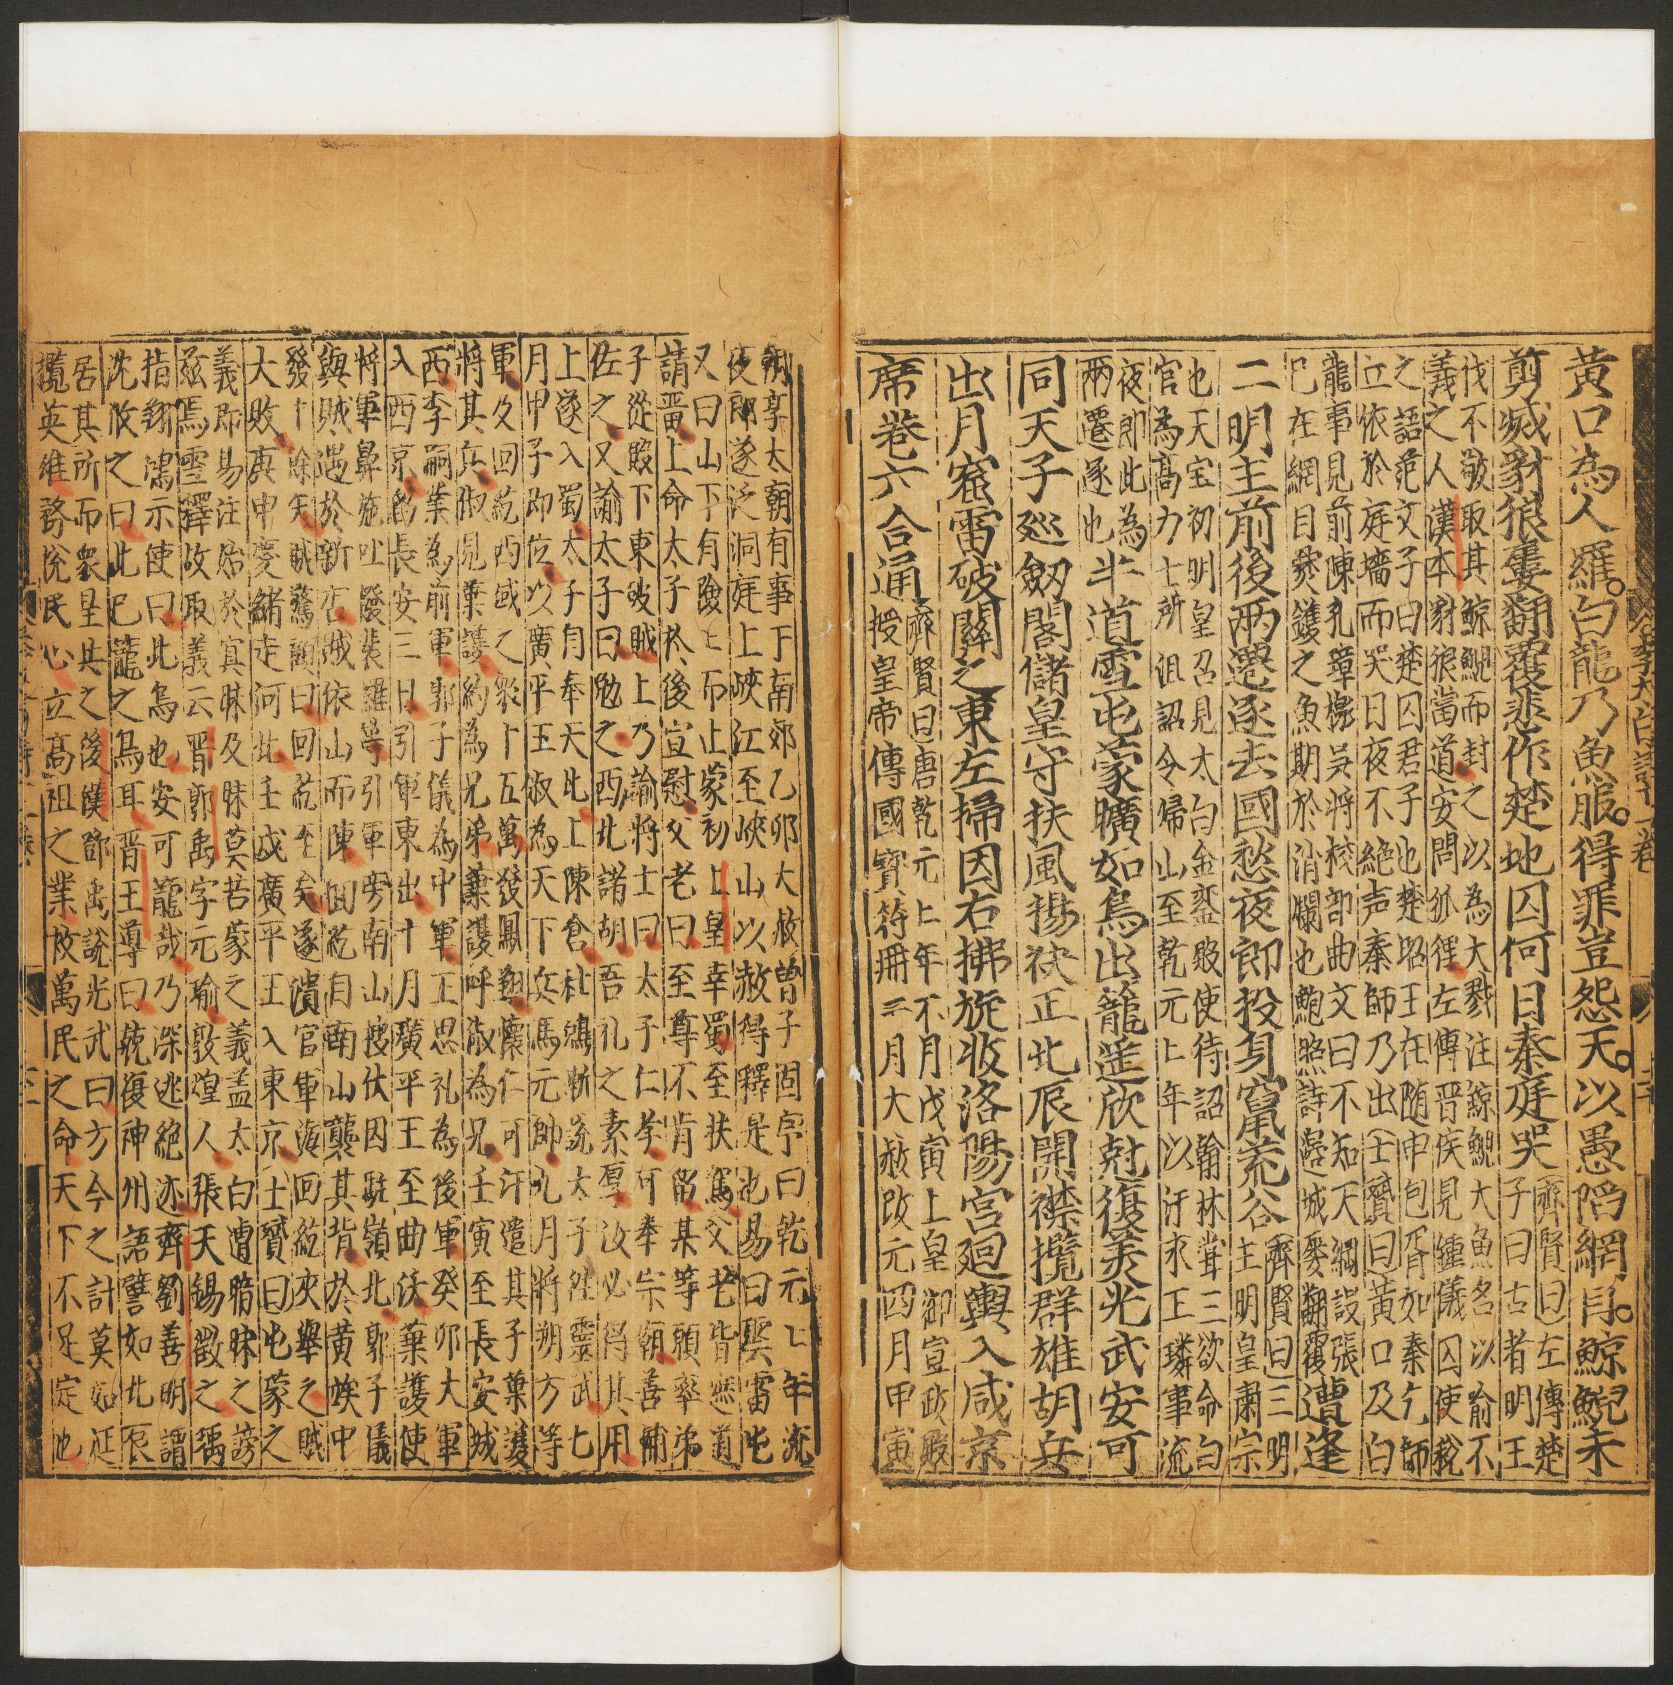 黄口為人羅白龍乃魚服得罪豈怨天以愚陷網目鯨鯢未
剪滅豺狼屢翻覆悲作楚地囚何日秦庭哭
齊賢曰左傳楚
子曰古者明王
伐不敬取其鯨鯢而封之以為大戮注鯨鯢大魚名以喻不
義之人漢本豺狼當道安問狐狸左傳晋侯見鍾儀囚使稅
之語范文子曰楚囚君子也楚昭王在随申包胥如秦乞師
立依於庭墻而哭日夜不絶声秦師乃出士贇曰黄口及白
龍事見前陳孔璋檄吳將校部曲文曰不知天綱設張
已在網目爨鑊之魚期於消爛也鮑照詩嚴城麥翻覆
遭逢
二明主前後兩遷逐去國愁夜郎投身竄荒谷
齊賢曰三明
主明皇肅宗
也天宝初明皇召見太白金鑾殿使待詔翰林嘗三欲命白
官為高力士所沮詔令歸山至乾元上年以汙求王璘事流
夜郎此為
兩遷逐也
半道雪屯蒙曠如鳥出籠遥欣尅復羙光武安可
同天子巡劔閣儲皇守扶風揚袂正北辰開襟攬群雄胡兵
出月窟雷破關之東左掃因右拂旋收洛陽宫廻輿入咸京
席卷六合通
齊賢曰唐乾元上年不月戊寅上皇御宣政殿
授皇帝傳國寶符冊二月大赦改元四月甲寅
朔享太朝有事于南郊乙卯大赦曾子固序曰乾元乙年流
夜郎遂泛洞庭上峽江至峽山以赦得釋是也易曰雲雷屯
又曰山下有險上而止蒙初上皇幸蜀至扶風父老皆遮道
請畱上命太子於後宣慰父老曰至尊不肯畱某等願率弟
子從殿下東破賊上乃諭將士曰太子仁孝可奉宗朝善輔
佐之又諭太子曰勉之西北諸胡吾礼之素厚汝必得其用
上遂入蜀太子自奉天北上陳倉杜鴻漸說太子往靈武七
月甲子即位以廣平王俶為天下兵馬元帥九月將朔方等
軍及回紇西域之衆十五萬發鳳翔懷仁可汗遣其子葉護
將其兵俶見葉護約為兄弟葉護呼俶為兄壬寅至長安城
西李嗣業為前軍郭子儀為中軍王思礼為後軍癸卯大軍
入西京留長安三日引軍東出十月廣平王至曲沃葉護使
將軍鼻施吐撥裴羅等引軍旁南山搜伏因駐嶺北郭子儀
與賊遇於新店賊依山而陳回紇自南山襲其背於黄埃中
發十餘矢賊驚顧曰回紇至矣遂潰官軍與回紇夾擊之賊
大敗庚申慶緒走河北壬戌廣平王入東京士贇曰屯蒙之
義即易注始於冥昧及昧莫若蒙之義盖太白遭暗昧之謗
兹焉雪釋故取義云晋郭禹字元瑜敦煌人張天錫徵之瑀
指翔鴻示使曰此鳥也安可籠哉乃深逃絶迹齊劉善明謂
沈攸之曰此已籠之鳥耳晋王導曰尅復神州語譬如北辰
居其所而衆星共之後漢鄧禹說光武曰方今之計莫如延
攬英雄務恱民心立高祖之業救萬民之命天下不足定也